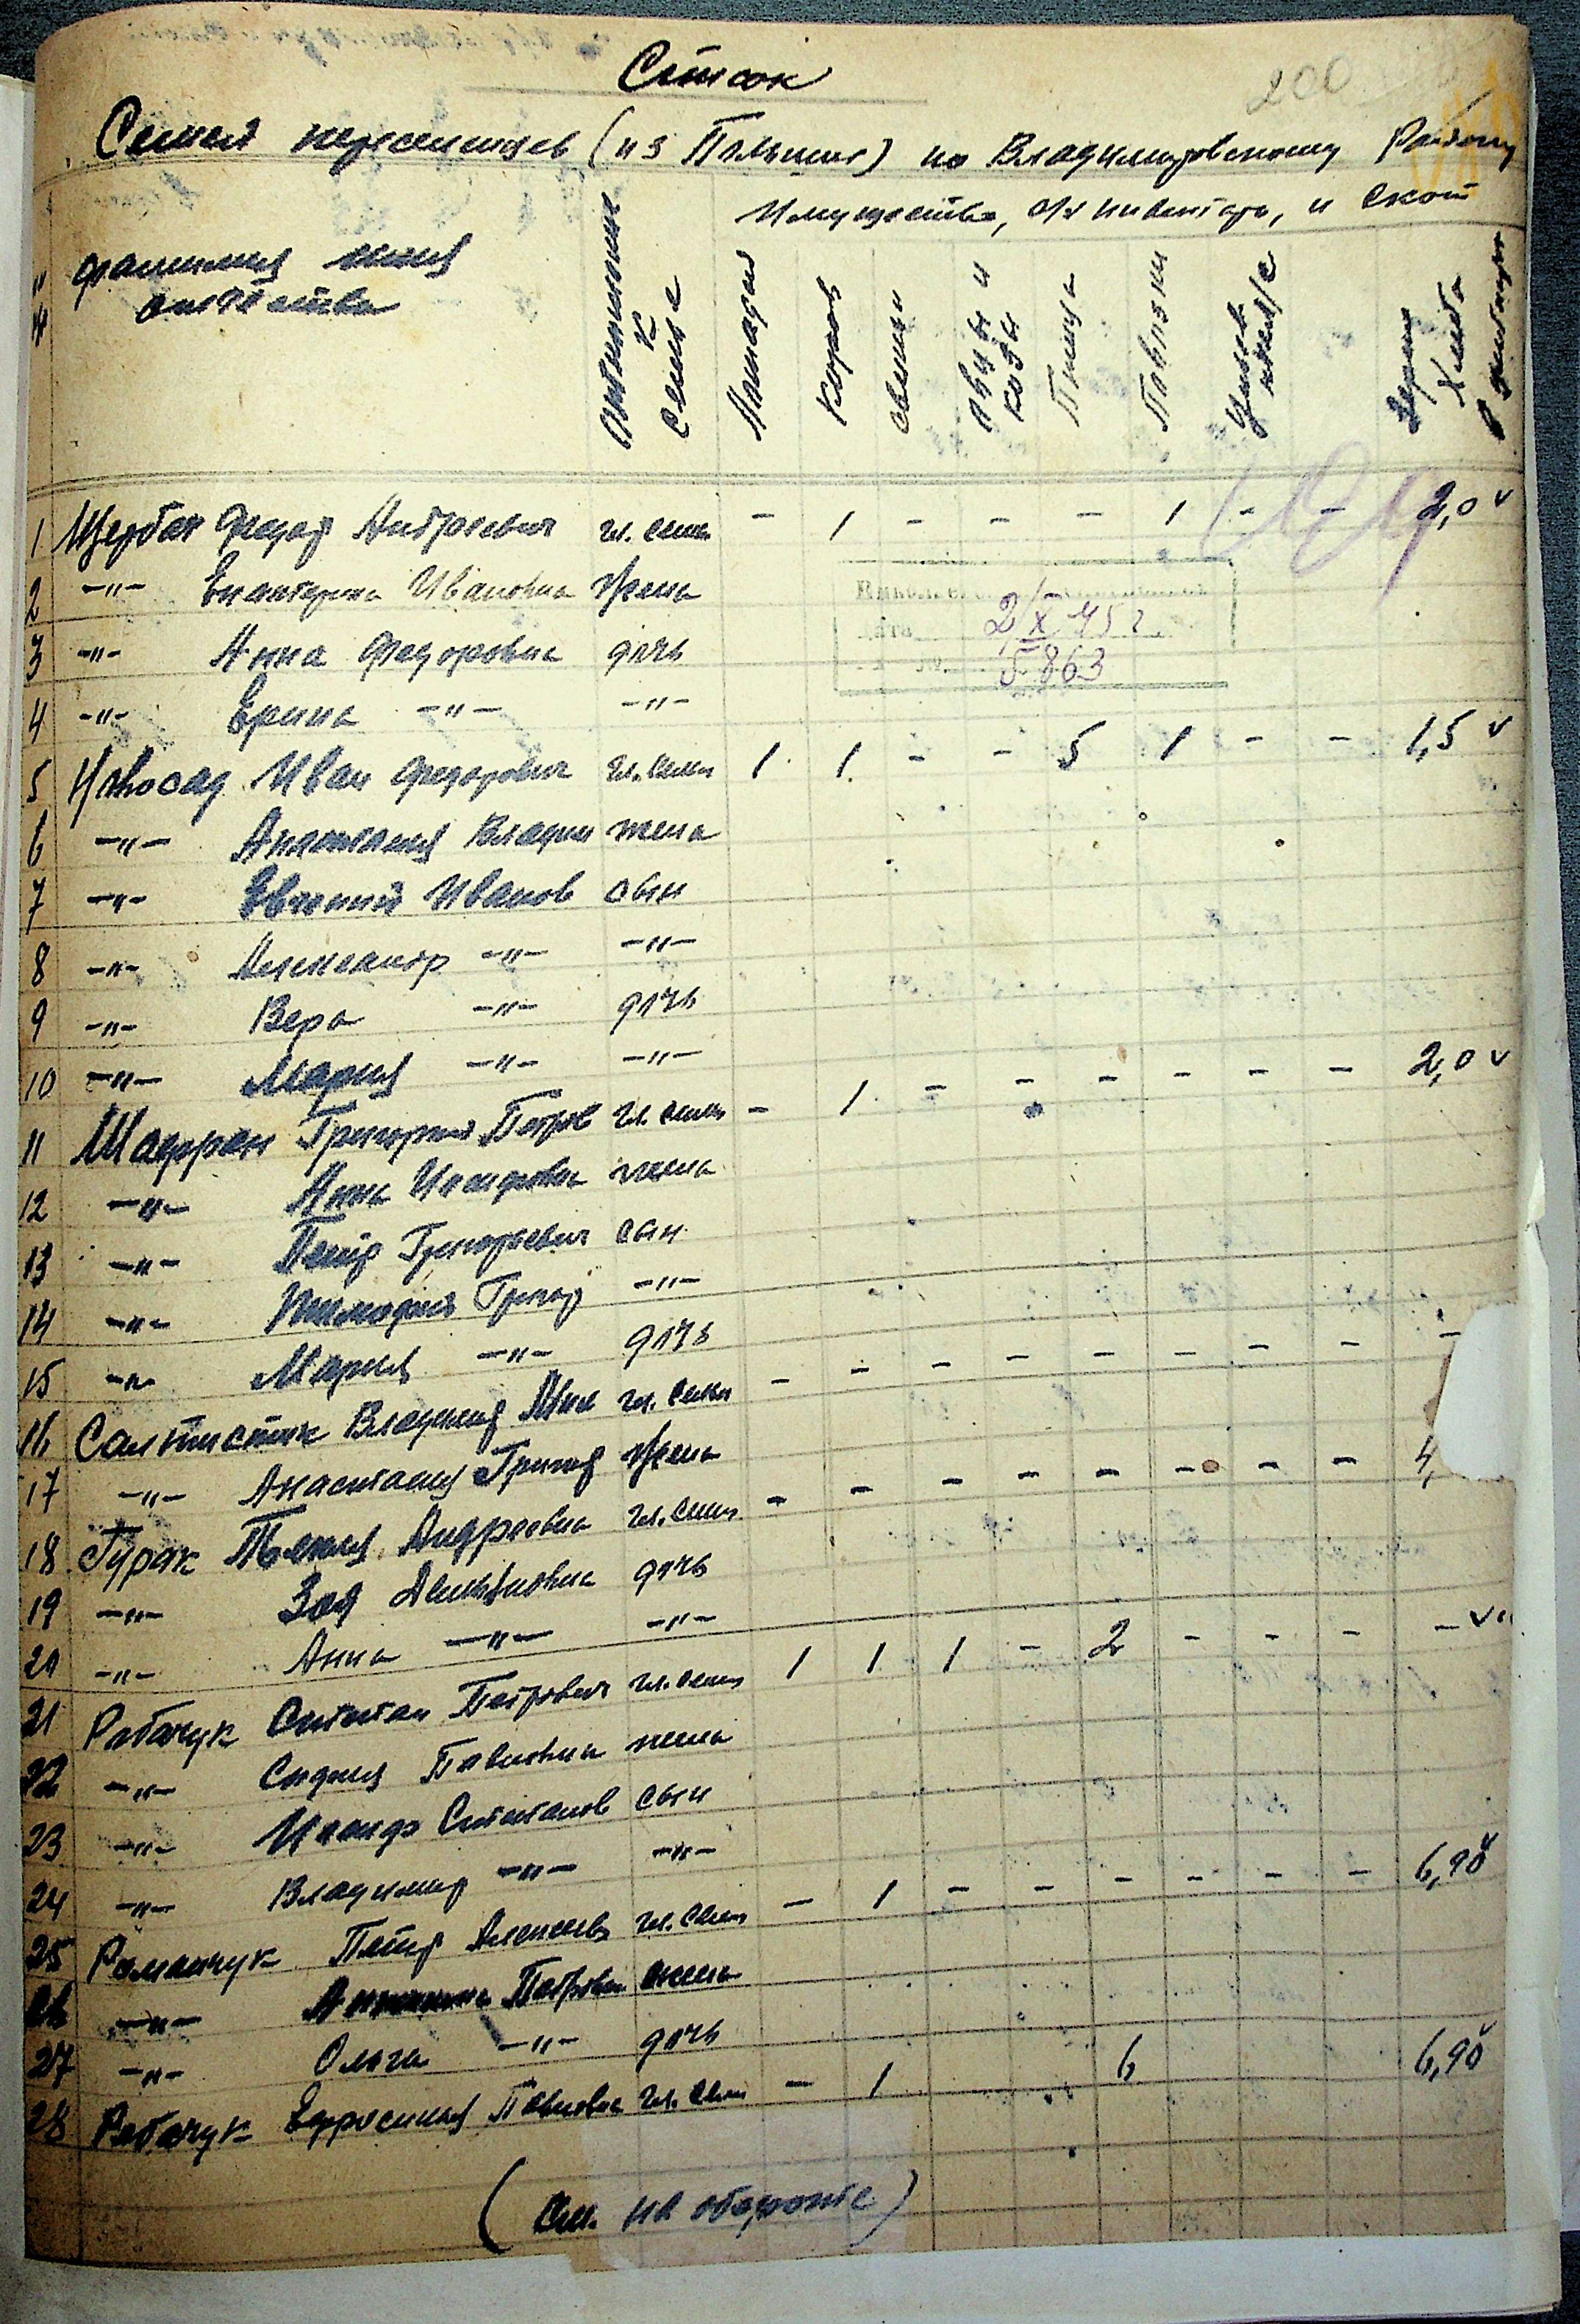 200
Список
Семей переселенцев (из Польши) по Владимировскому Району
№ фамилия имя отчества Отношение к семье Имущество, с/х инвентарь, и скот
Лошадей Коров свиньи овцы и козы Птица Повозки Зерна хлеба в центнерах
1 Щербак Федор Андреевич гл. семьи - 1 - - - 1 - - 2,0 v
2 -"- Екатерина Ивановна жена
2/X 45 г.
3 -"- Анна Федоровна дочь
5863
4 -"- Ерина -"- -"-
5 Новосад Иван Федорович гл. семьи 1 1 - - 5 1 - - 1,5 v
6 -"- Анастасия Владим жена
7 -"- Евгений Иванов сын
8 -"- Александр -"- -"-
9 -"- Вера -"- дочь
10 -"- Мария -"- -"-
11 Шафран Григорий Петров гл. семьи - 1 - - - - - - 2,0 v
12 -"- Анна жена
13 -"- Петр Григорьевич сын
14 -"- Григор -"-
15 -"- Мария -"- дочь
16 Владимир гл. семьи - - - - - - - - -
17 -"- Анастасия Григор жена
18 Гурак Андреевна гл. семьи - - - - - - - - 4,
19 -"- Зоя дочь
20 -"- Анна -"- -"-
21 Рабачук Степан Петрович гл. семьи 1 1 1 - 2 - - - - v
22 -"- Павловна жена
23 -"- Степанов сын
24 -"- Владимир -"- -"-
25 Романчук Петр Алексеев гл. семьи - 1 - - - - - - 6,90 v
26 -"- Петровна жена
27 -"- Ольга -"- дочь
28 Рабачук Ефросиния Павловна гл. семьи - 1 6 6,90 v
(см. на обороте)